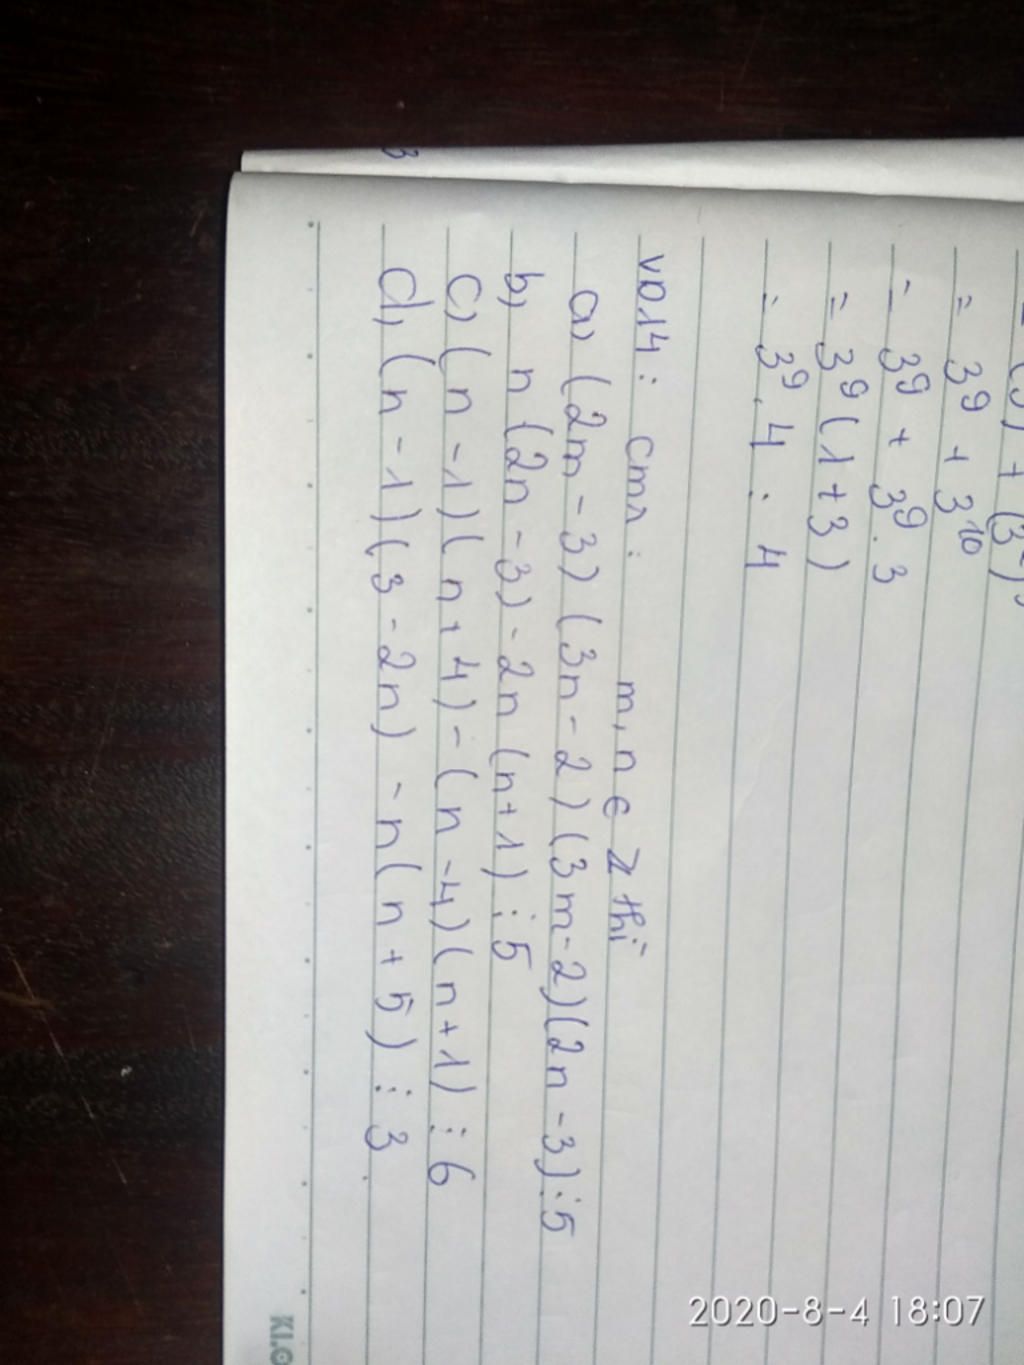 = 3⁹ + 3¹⁰
= 3⁹ + 3⁹.3
= 3⁹(1+3)
= 3⁹.4 ⋮ 4
VD14: cmr: m,n ∈ Z thì
a, (2m-3)(3n-2)(3m-2)(2n-3)⋮5
b, n(2n-3)-2n(n+1)⋮5
c, (n-1)(n+4)-(n-4)(n+1)⋮6
d, (n-1)(3-2n)-n(n+5)⋮3
3
2020-8-4 18:07